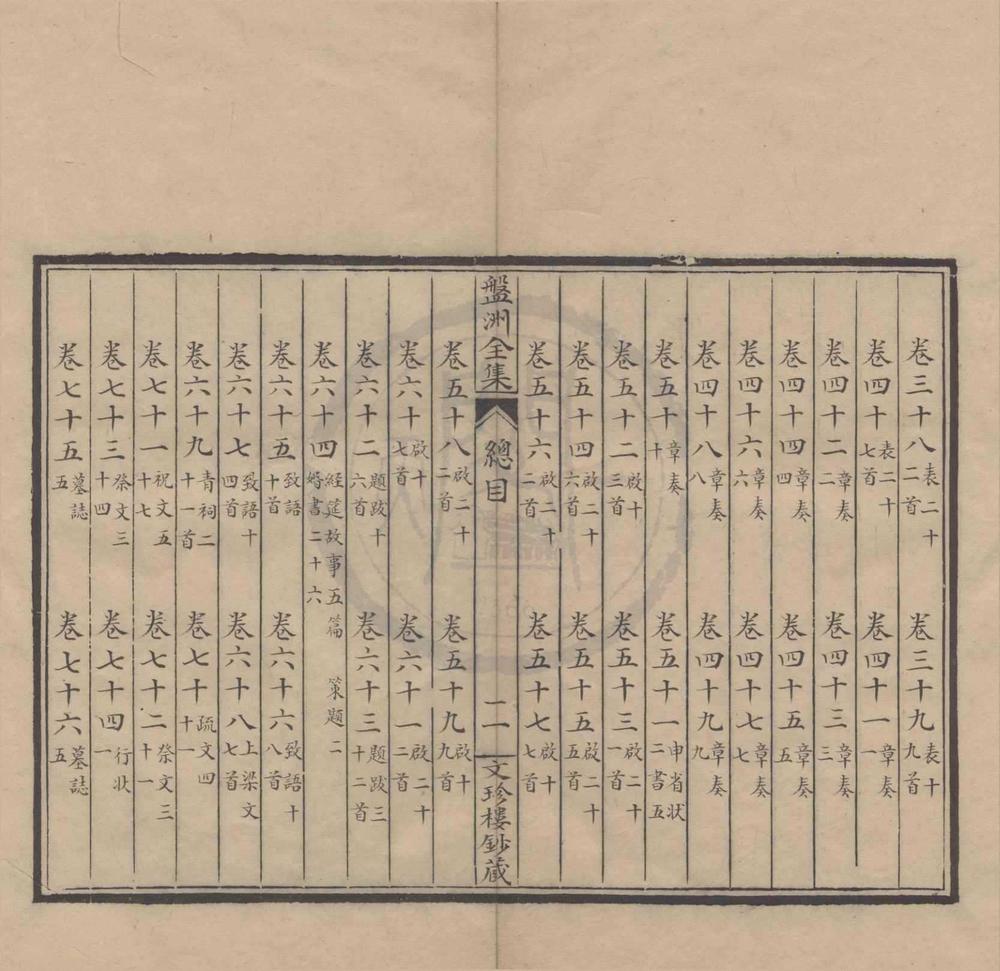 卷三十八表二十二首 卷三十九表十九首
卷四十表二十七首 卷四十一章奏一
卷四十二章奏二 卷四十三章奏三
卷四十四章奏四 卷四十五章奏五
卷四十六章奏六 卷四十七章奏七
卷四十八章奏八 卷四十九章奏九
卷五十章奏十 卷五十一申省状二書五
卷五十二啟十三首 卷五十三啟二十一首
卷五十四啟二十六首 卷五十五啟二十五首
卷五十六啟二十二首 卷五十七啟十七首
盤洲全集 總目 二 文珍樓鈔藏
卷五十八啟二十二首 卷五十九啟十九首
卷六十啟十七首 卷六十一啟二十二首
卷六十二題跋十六首 卷六十三題跋三十二首
卷六十四經筵故事五篇 策題二婚書二十六
卷六十五致語十首 卷六十六致語十八首
卷六十七致語十四首 卷六十八上梁文七首
卷六十九青祠二十一首 卷七十疏文四十一
卷七十一祝文五十七 卷七十二祭文三十一
卷七十三祭文三十四 卷七十四行状一
卷七十五墓誌五 卷七十六墓誌五